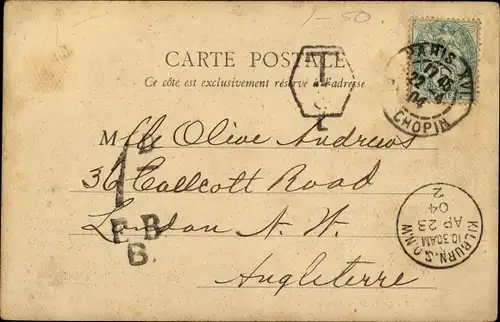 1-50
CARTE POSTALE
Ce côté est exclusivement réservé à l'adresse
T
PARIS XVI
22 4
04
CHOPIN
Mlle Olive Andrews
36 Callcott Road
London N. W.
Angleterre
1D
F.B
B.
KILBURN.S.O.N.W
10.30AM
AP 23
04
2